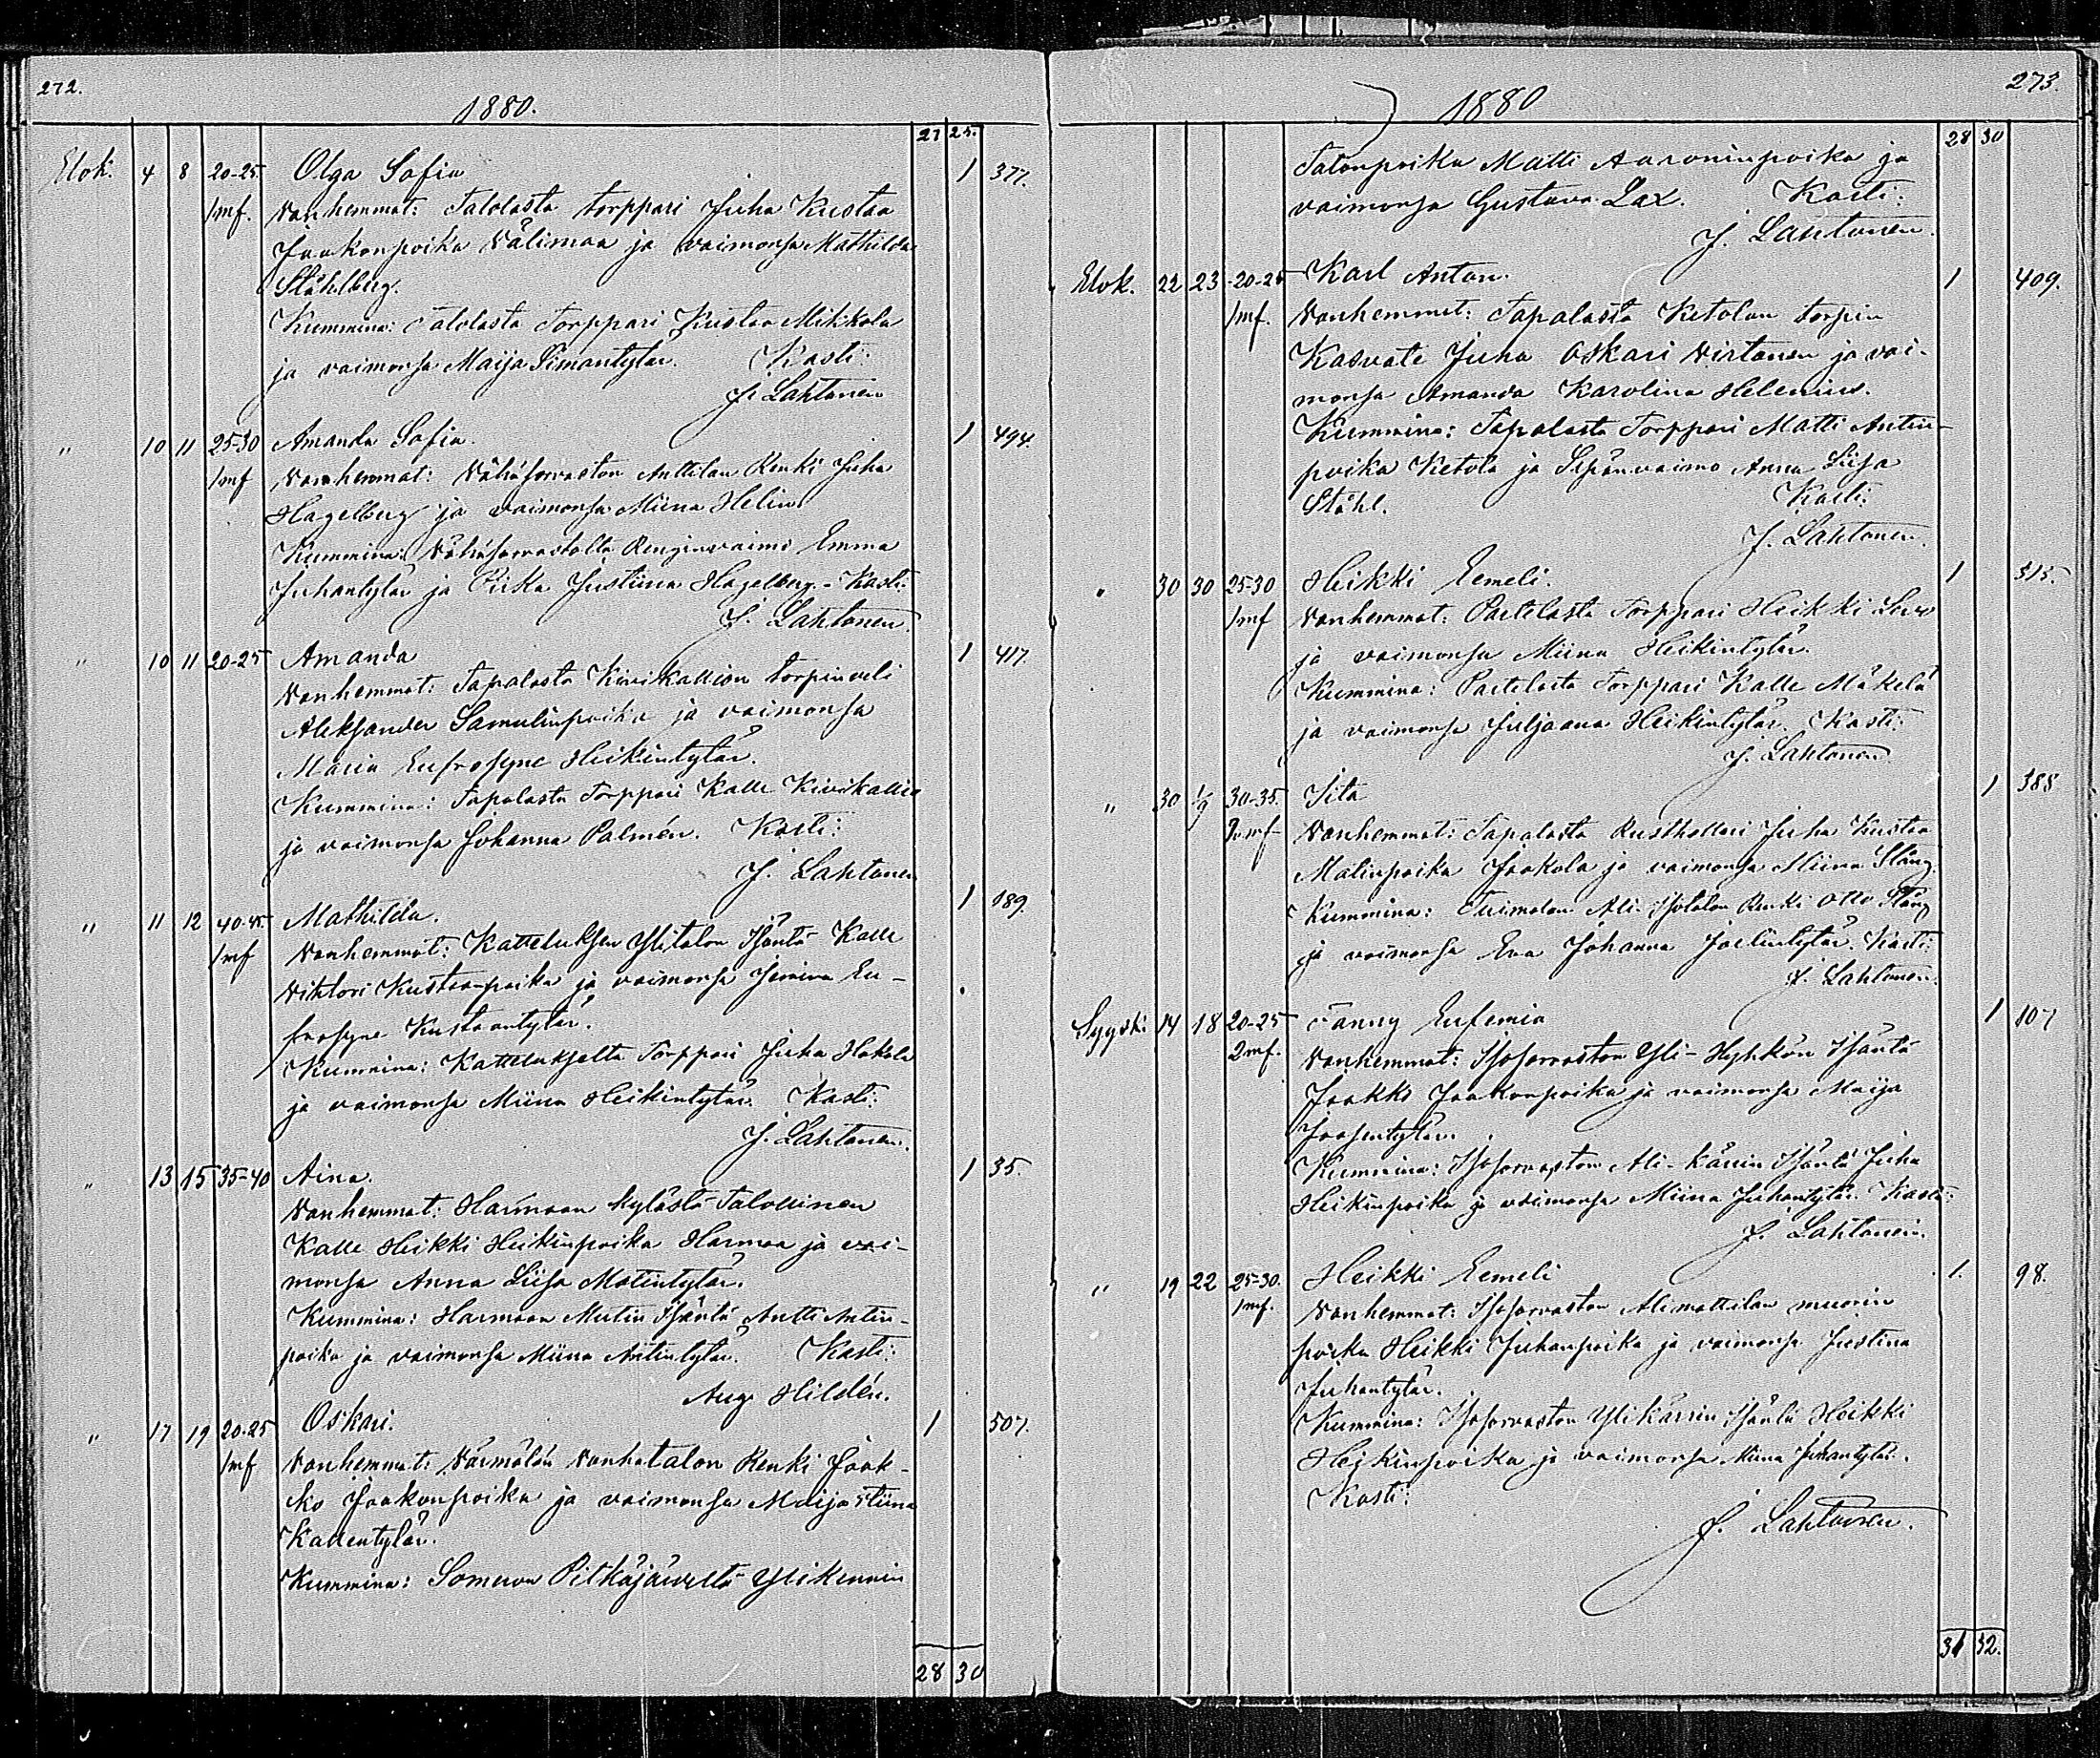 272.
1880.
27 25.
Elok. 4 8 20-25. Olga Sofia 1 377.
1mf. Vanhemmat: Talolasta torppari Juha Kustaa
Jaakonpoika Välimaa ja vaimonsa Mathilda
Ståhlberg.
Kummina: Talolasta Torppari Kustaa Mikkola
ja vaimonsa Maija Simantytär. Kasti:
J. Lahtonen
" 10 11 25-30 Amanda Sofia. 1 494.
1mf Vanhemmat: Vähäsorvaston Anttilan Renki Juha
Hagelberg ja vaimonsa Miina Helin.
Kummina: Vähäsorvastolta Renginvaimo Emma
Juhantytär ja Piika Justiina Hagelberg. - Kasti:
J. Lahtonen.
" 10 11 20-25 Amanda 1 417.
Vanhemmat: Tapalasta Kivikallion torpin veli
Aleksander Samulinpoika ja vaimonsa
Maria Eufrosyne Heikintytär.
Kummina: Tapalasta Torppari Kalle Kivikallio
ja vaimonsa Johanna Palmén. Kasti:
J. Lahtonen
" 11 12 40-45. Mathilda. 1 189.
1mf Vanhemmat: Katteluksen Ylitalon Isäntä Kalle
Vihtori Kustaanpoika ja vaimonsa Eu-
frosyne Kustaantytär.
Kummina: Kattelukselta Torppari Juha Hakala
ja vaimonsa Miina Heikintytär. Kasti:
J. Lahtonen.
" 13 15 35-40 Aina. 1 35.
Vanhemmat: Harmaan kylästä Talollinen
Kalle Heikki Heikinpoika Harmaa ja vai-
monsa Anna Liisa Matintytär.
Kummina: Harmaan Mutin Isäntä Antti Antin-
poika ja vaimonsa Miina Antintytär. Kasti:
Aug. Hildén.
" 17 19 20-25 Oskari. 1 507.
1mf Vanhemmat: Värmälän Vanhatalon Renki Jaak-
ko Jaakonpoika ja vaimonsa Maijastiina
Kallentytär.
Kummina: Someron Pitkäjärveltä Ylikennin
28 30
273.
1880
28 30
Talonpoika Matti Aaroninpoika ja
vaimonsa Gustava Lax. Kasti:
J. Lahtonen.
Elok. 22 23 20-25 Karl Anton. 1 409.
1mf. Vanhemmat: Tapalasta Ketolan torpin
Kasvate Juha Oskari Virtanen ja vai-
monsa Amanda Karolina Helenius.
Kummina: Tapalasta Torppari Matti Antin-
poika Ketola ja Sepänvaimo Anna Liisa
Ståhl. Kasti:
J. Lahtonen.
" 30 30 25-30 Heikki Eemeli. 1 515.
1mf Vanhemmat: Paitelasta Torppari Heikki
ja vaimonsa Miina Heikintytär.
Kummina: Paitelasta Torppari Kalle Mäkelä
ja vaimonsa Juljaana Heikintytär. Kasti:
J. Lahtonen.
" 30 1/9 30-35. Iita 1 388
mf Vanhemmat: Tapalasta Rusthollari Juha Kustaa
Matinpoika Jaakola ja vaimonsa Miina Stång.
Kummina: Ali-Isotalon Renki Otto Stång
ja vaimonsa Eva Johanna Joelintytär. Kasti:
J. Lahtonen.
Syysk. 14 18 20-25 Fanny Eufemia 1 107
2mf. Vanhemmat: Isosorvaston Yli-Hyhkön Isäntä
Jaakko Jaakonpoika ja vaimonsa Maija
Joosentytär.
Kummina: Isosorvaston Ali-Kärrin Isäntä Juha
Heikinpoika ja vaimonsa Miina Juhantytär. Kasti:
J. Lahtonen.
" 19 22 25-30. Heikki Eemeli 1. 98.
1mf. Vanhemmat: Isosorvaston Alimattilan muorin
poika Heikki Juhanpoika ja vaimonsa Justina
Juhantytär.
Kummina: Isosorvaston Ylikärrin Isäntä Heikki
Heikinpoika ja vaimonsa Miina Juhantytär.
Kasti:
J. Lahtonen.
31 32.